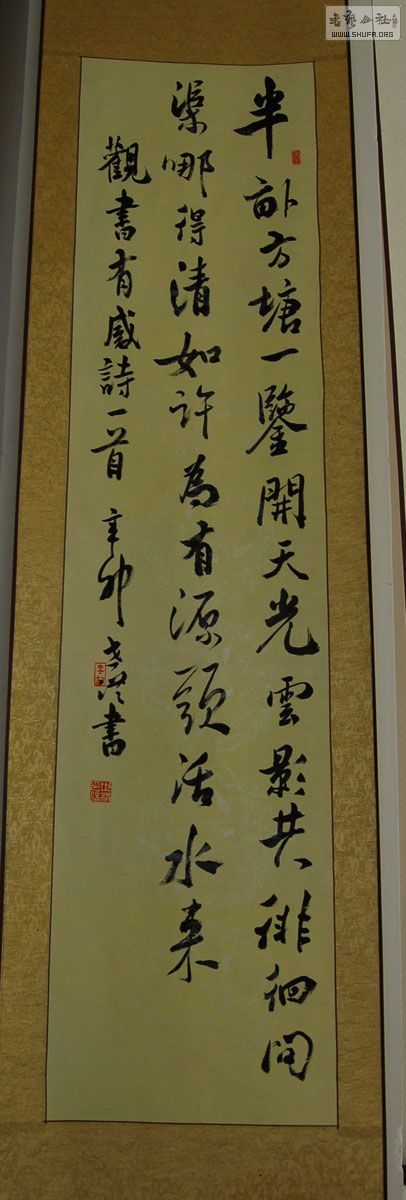 半畝方塘一鑒開天光雲影共徘徊問
渠哪得清如許為有源頭活水来
觀書有感詩一首 辛卯 書
WWW.SHUFA.ORG